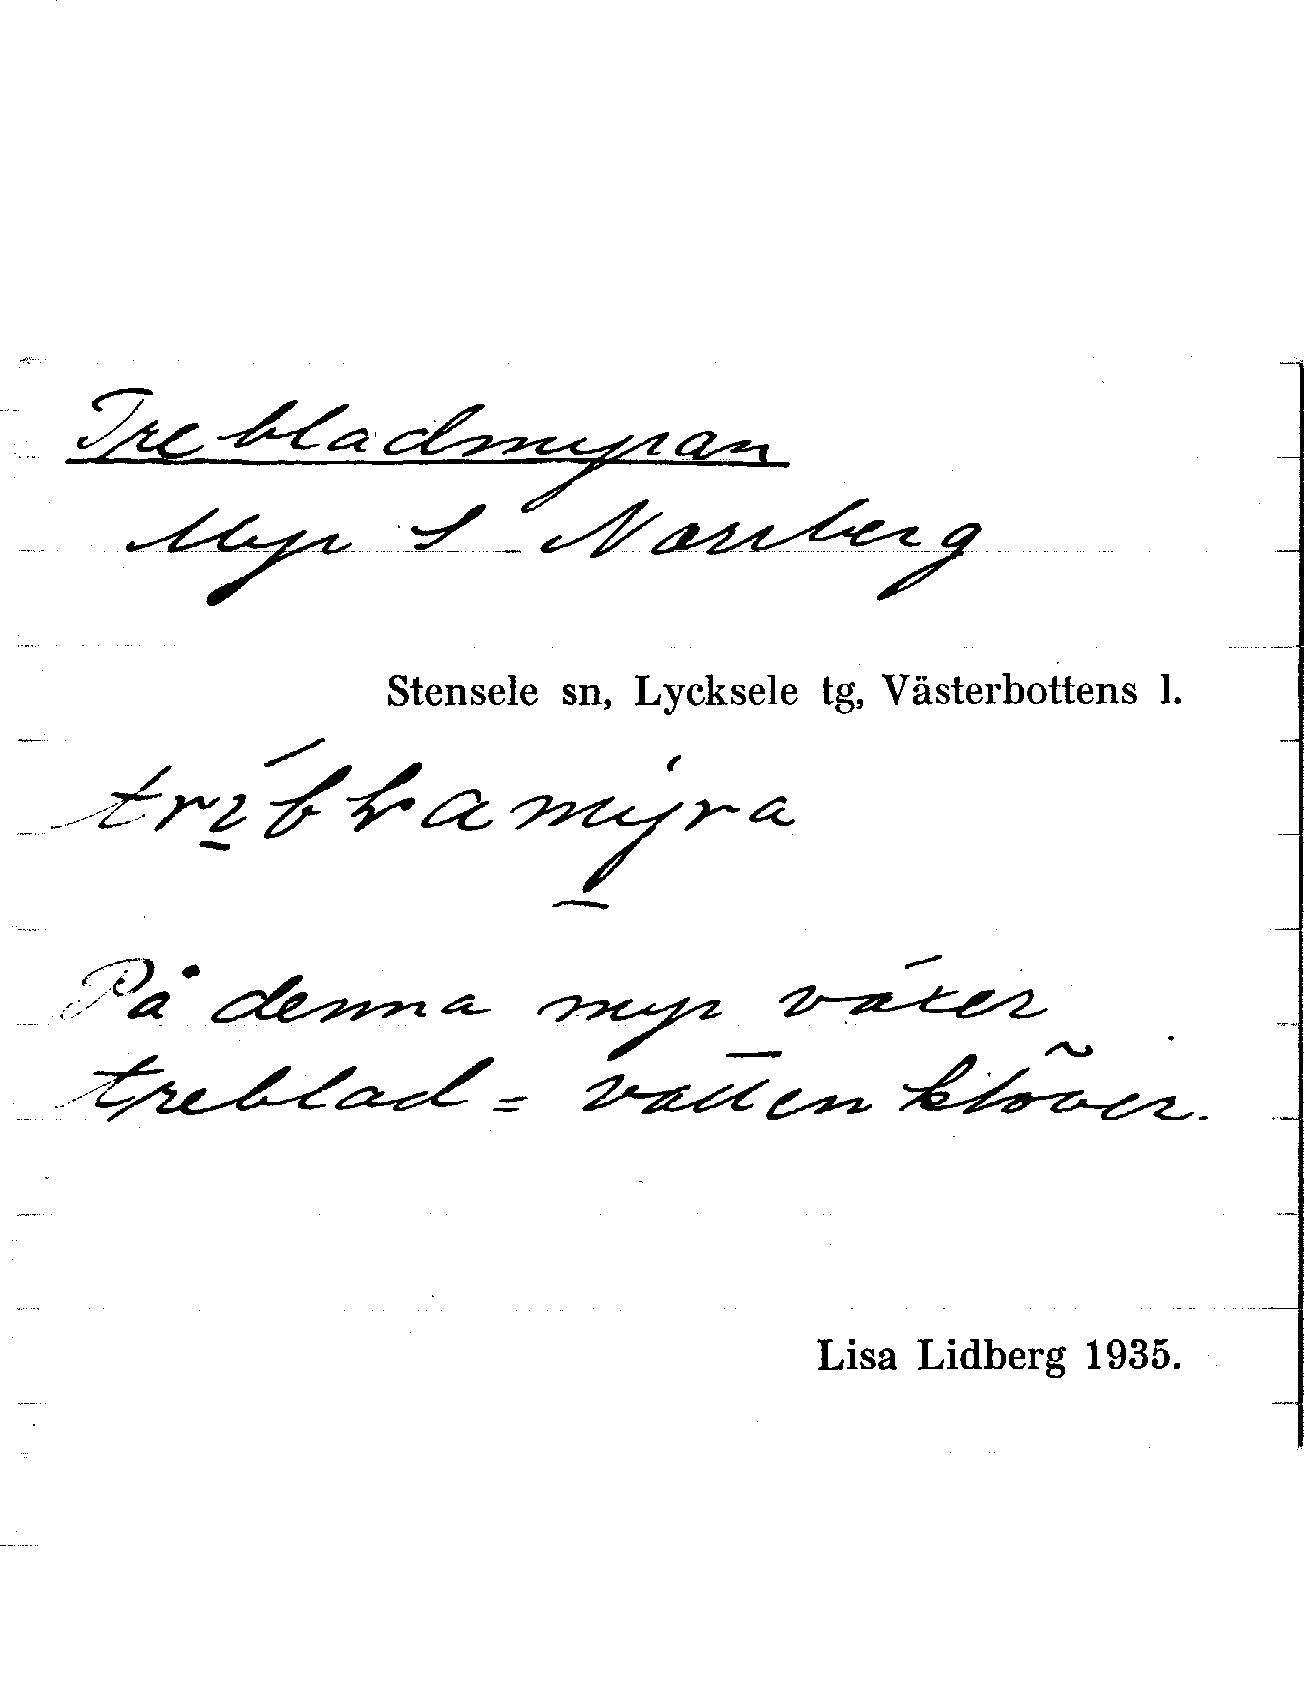 Trebladmyran
Myr S Norrberg
Stensele sn, Lycksele tg, Västerbottens l.
På denna myr växer
treblad = vattenklöver.
Lisa Lidberg 1935.